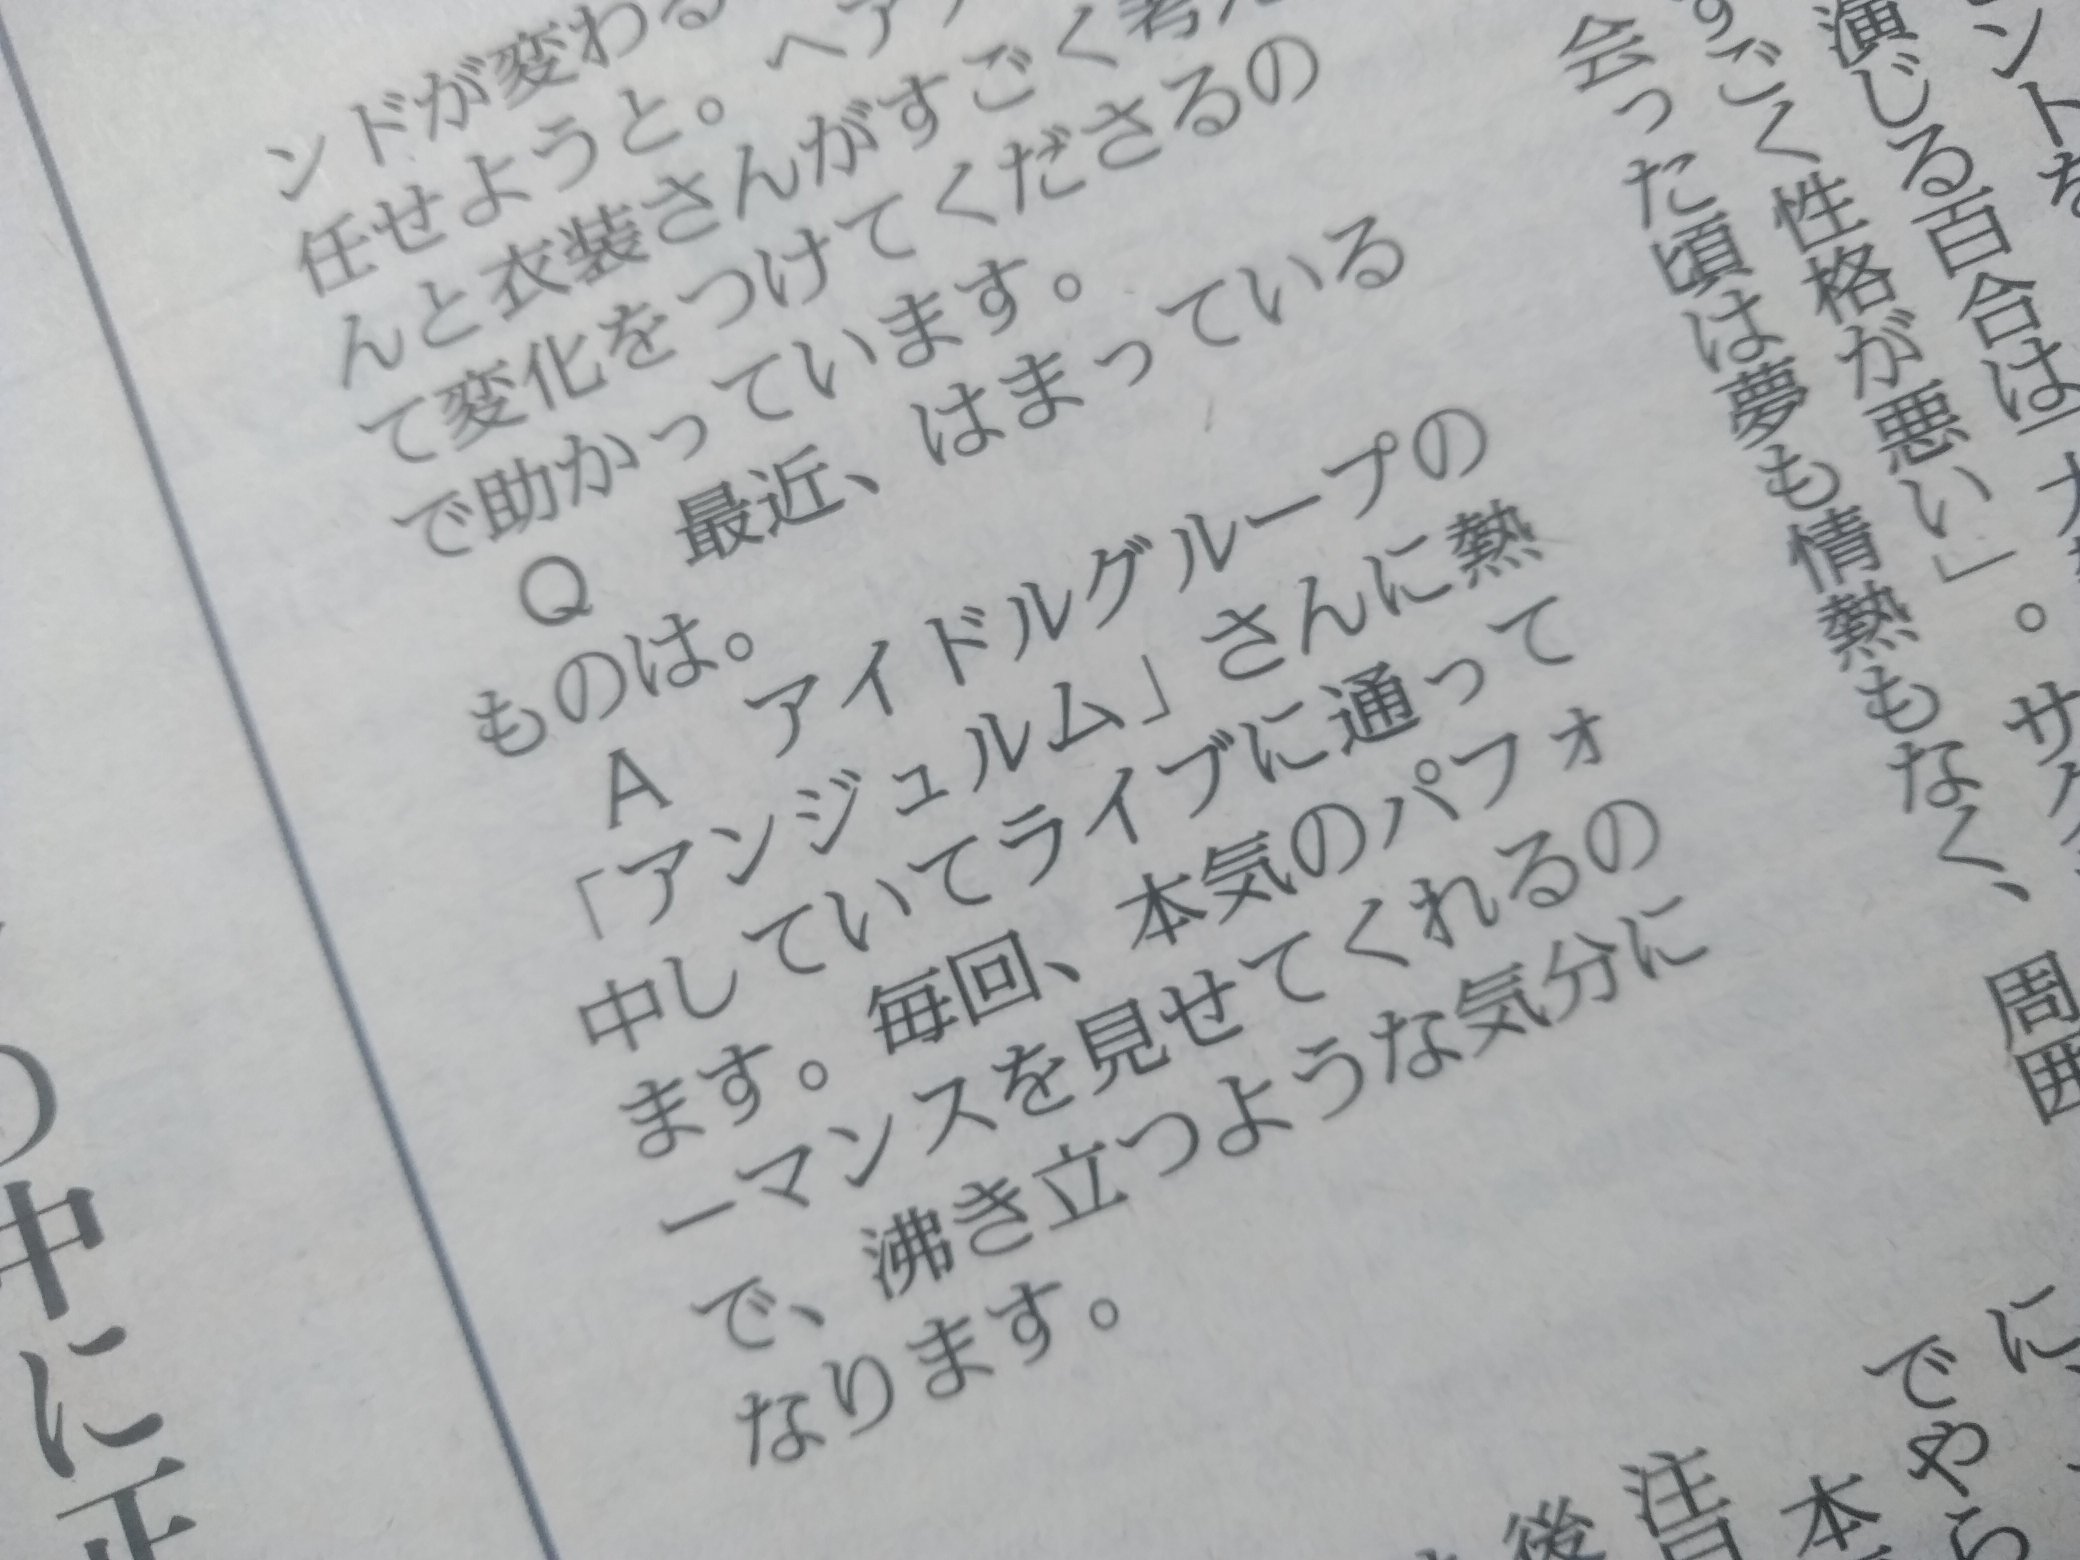 ンドが変わる
任せようと。ヘア
んと衣装さんがすごく考え
て変化をつけてくださるの
で助かっています。
Q　最近、はまっている
ものは。
A　アイドルグループの
「アンジュルム」さんに熱
中していてライブに通って
ます。毎回、本気のパフォ
ーマンスを見せてくれるの
で、沸き立つような気分に
なります。
ントを
演じる百合は「大
すごく性格が悪い」。サ
会った頃は夢も情熱もなく、周囲
に
でやら
本
注目
後
の中に正